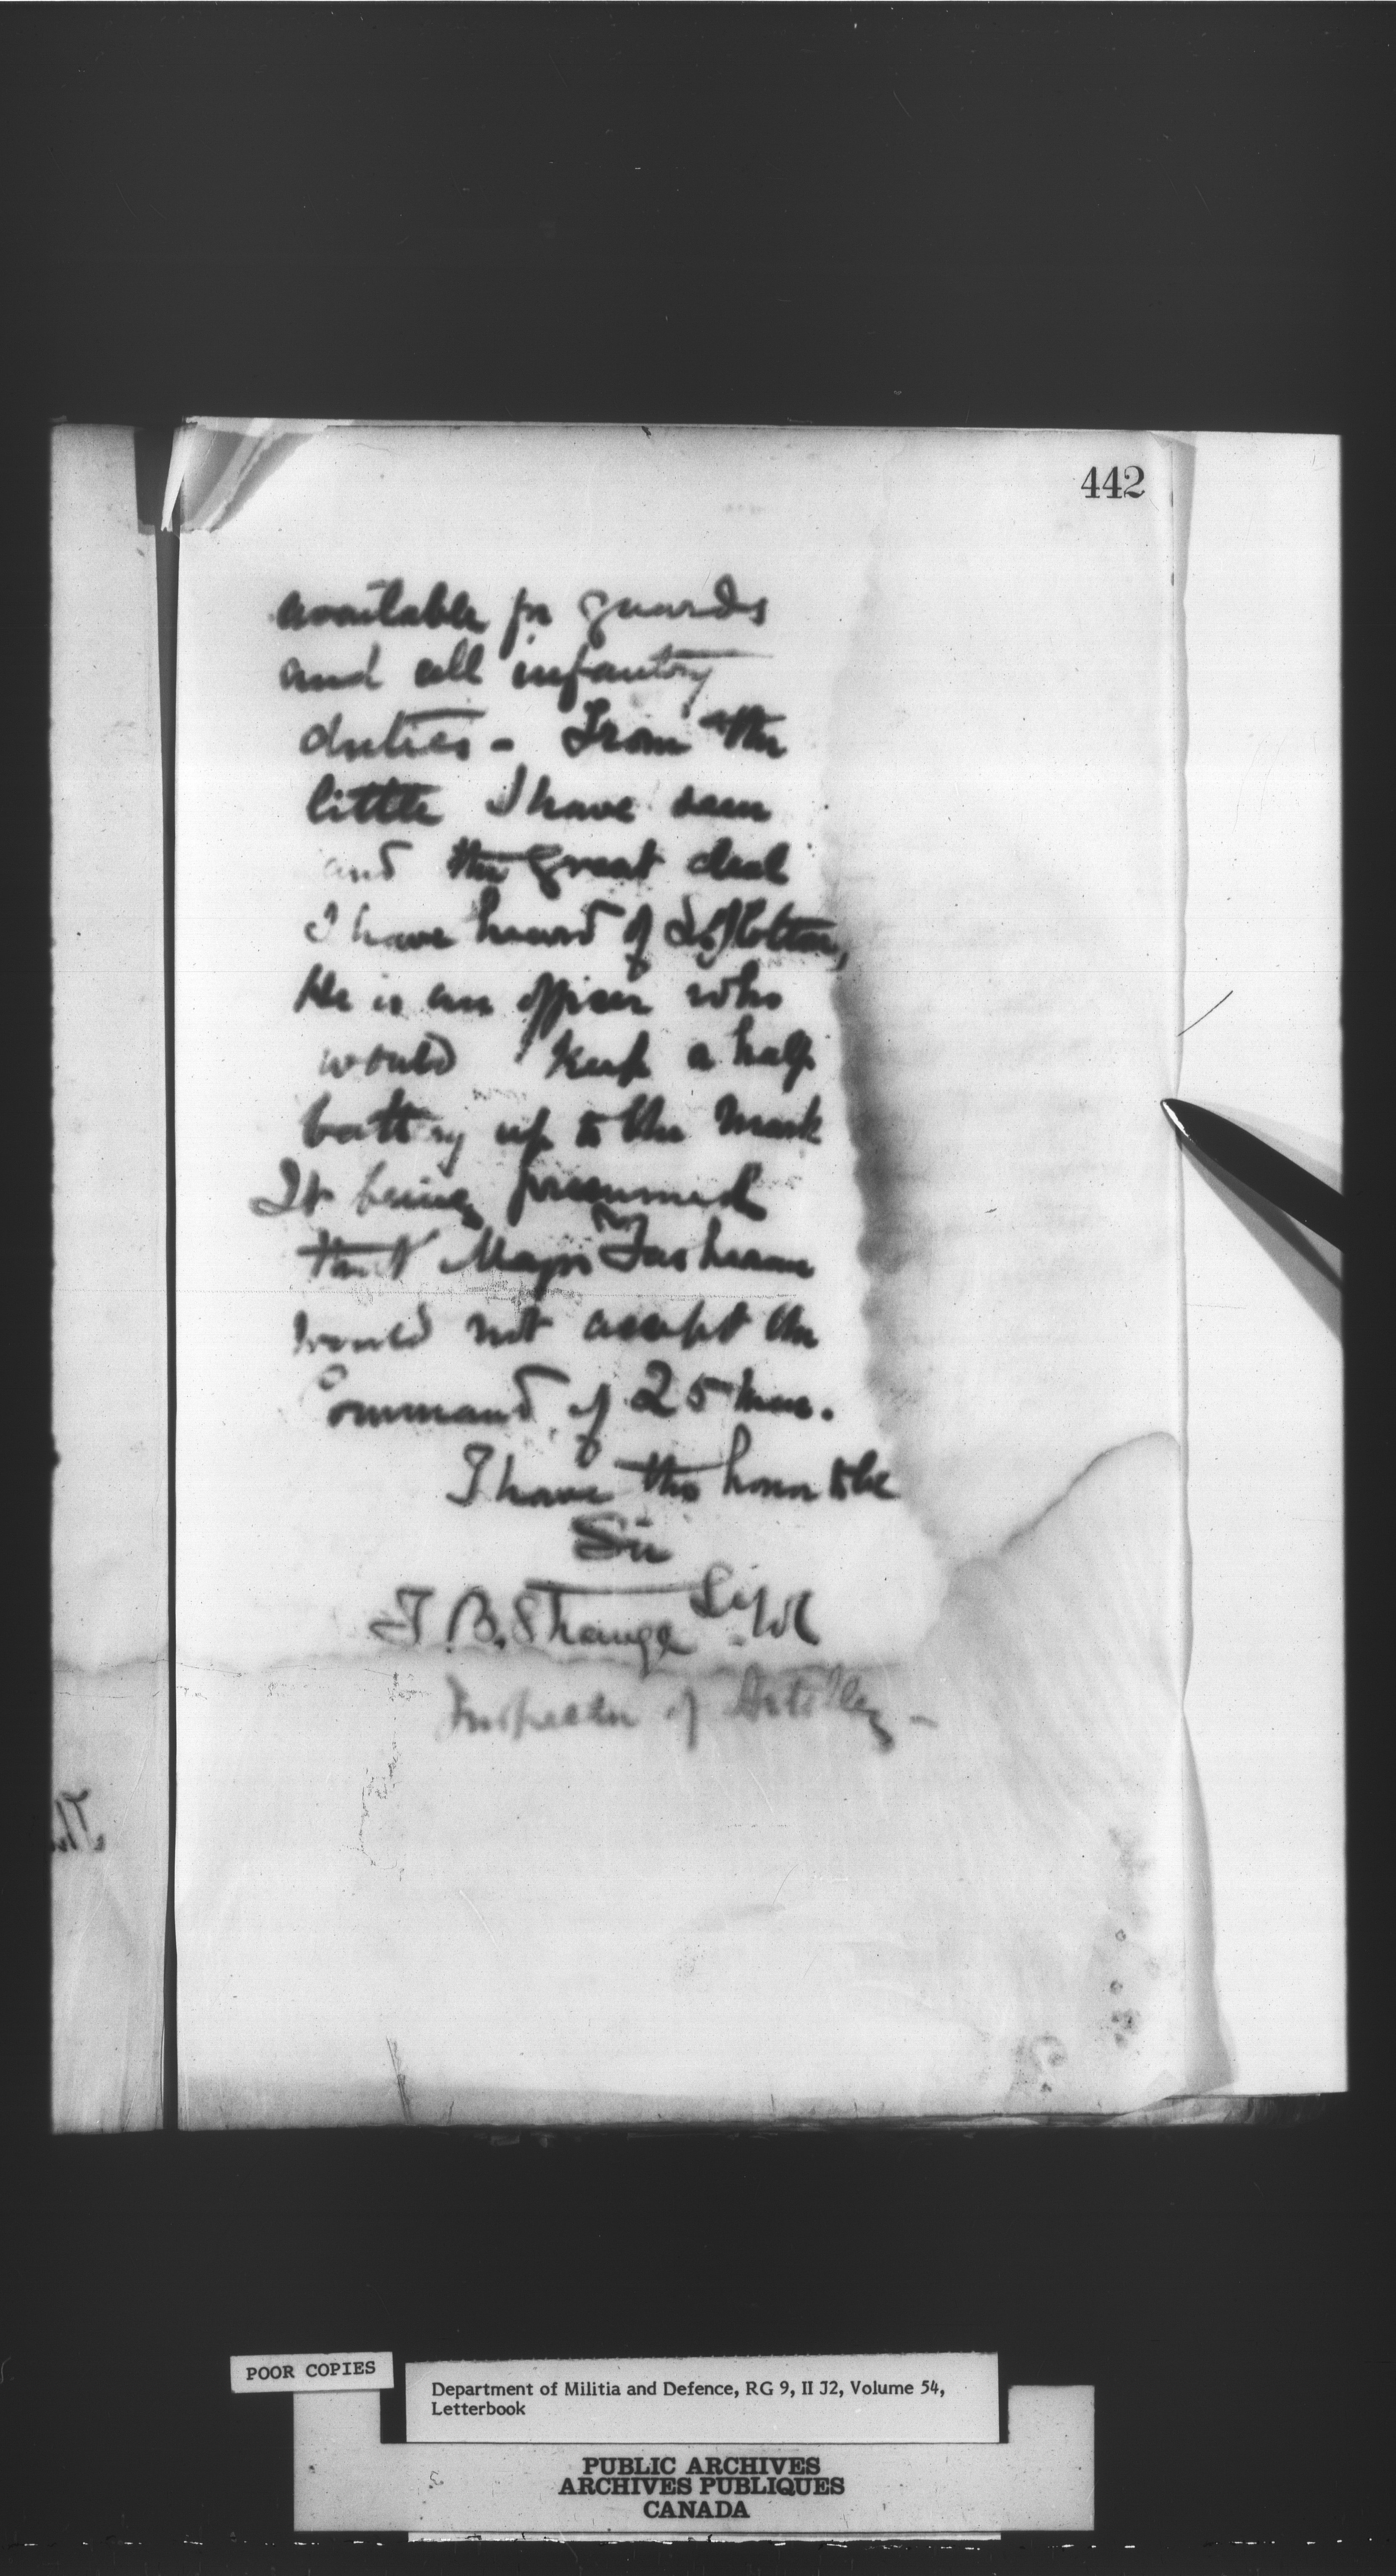 442
available for guards
and all infantry
duties - From the
little I have seen
and the great deal
I have heard of
He is an officer who
would keep a half
battery up to the mark
It being presumed
that Major
would not accept the
Command of 25 men.
I have the honor to be
Sir
T. B. Strange Lt Col
Inspector of Artillery -
The
POOR COPIES
Department of Militia and Defence, RG 9, II J2, Volume 54,
Letterbook
PUBLIC ARCHIVES
ARCHIVES PUBLIQUES
CANADA